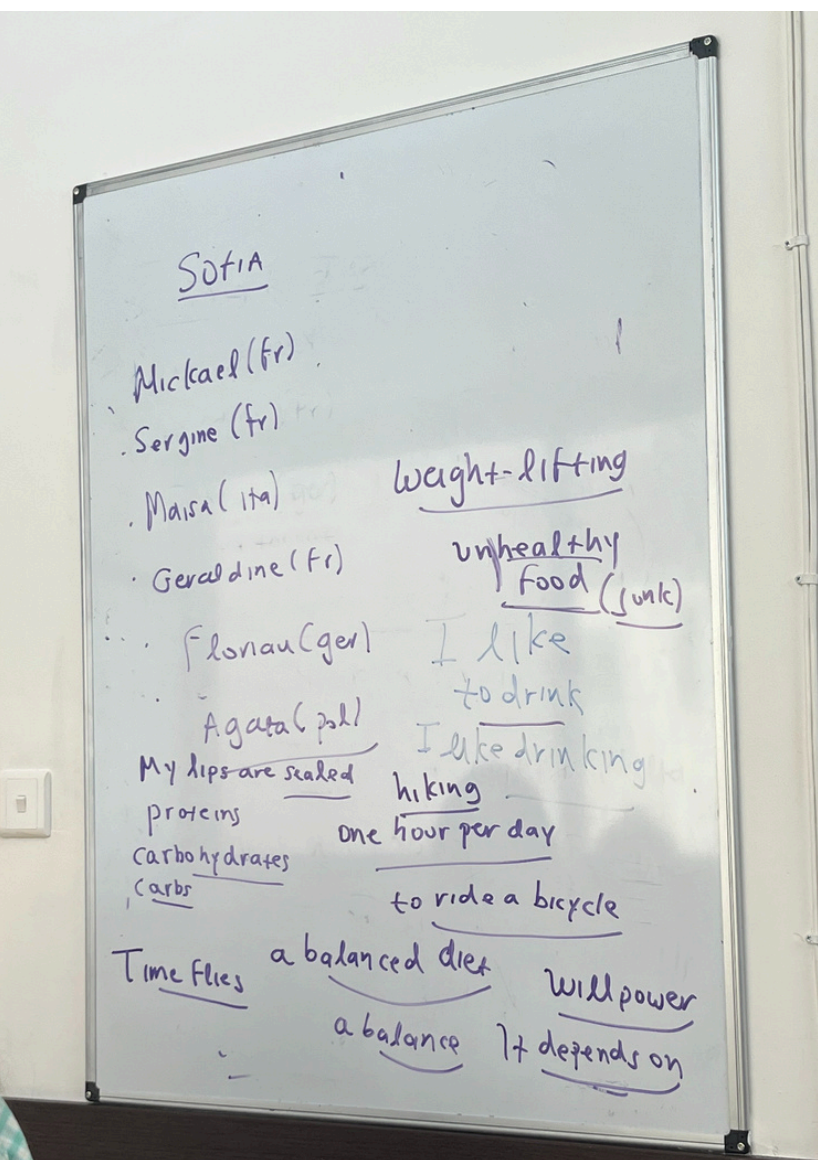 SOfIA
Mickael (fr)
Sergine (fr)
Maisa (ita)
Geraldine (fr)
Florian (ger)
Agata (pol)
My lips are sealed
proteins
carbohydrates
carbs
Time flies
weight-lifting
unhealthy
food (junk)
I like
to drink
I like drinking
hiking
one hour per day
to ride a bicycle
a balanced diet
willpower
a balance
It depends on